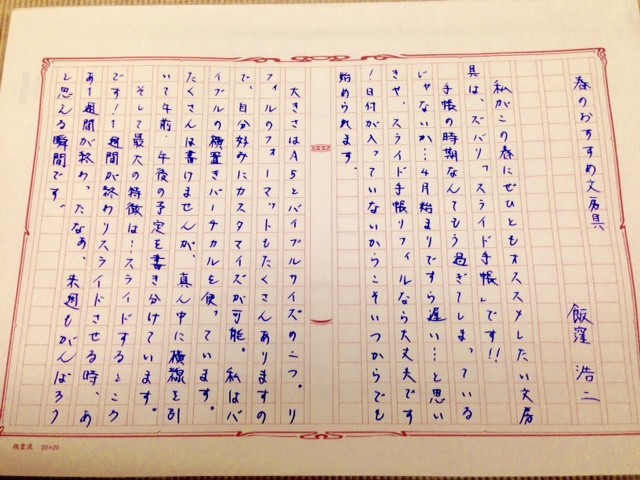 春のおすすめ文房具
飯窪 浩二
私がこの春にぜひともオススメしたい文房
具は、ズバリ「スライド手帳」です!!
手帳の時期なんてもう過ぎてしまっている
じゃないか…4月始まりですら遅い…と思い
きや、スライド手帳リフィルなら大丈夫です
!日付が入っていないからこそいつからでも
始められます。
大きさはA5とバイブルサイズの二つ。リ
フィルのフォーマットもたくさんありますの
で、自分好みにカスタマイズが可能。私はバ
イブルの横置きバーチカルを使っています。
たくさんは書けませんが、真ん中に横線を引
いて午前・午後の予定を書き分けています。
そして最大の特徴は…スライドするところ
です!1週間が終わりスライドさせる時、あ
あ1週間が終わったなぁ、来週もがんばろう
と思える瞬間です。
20×20